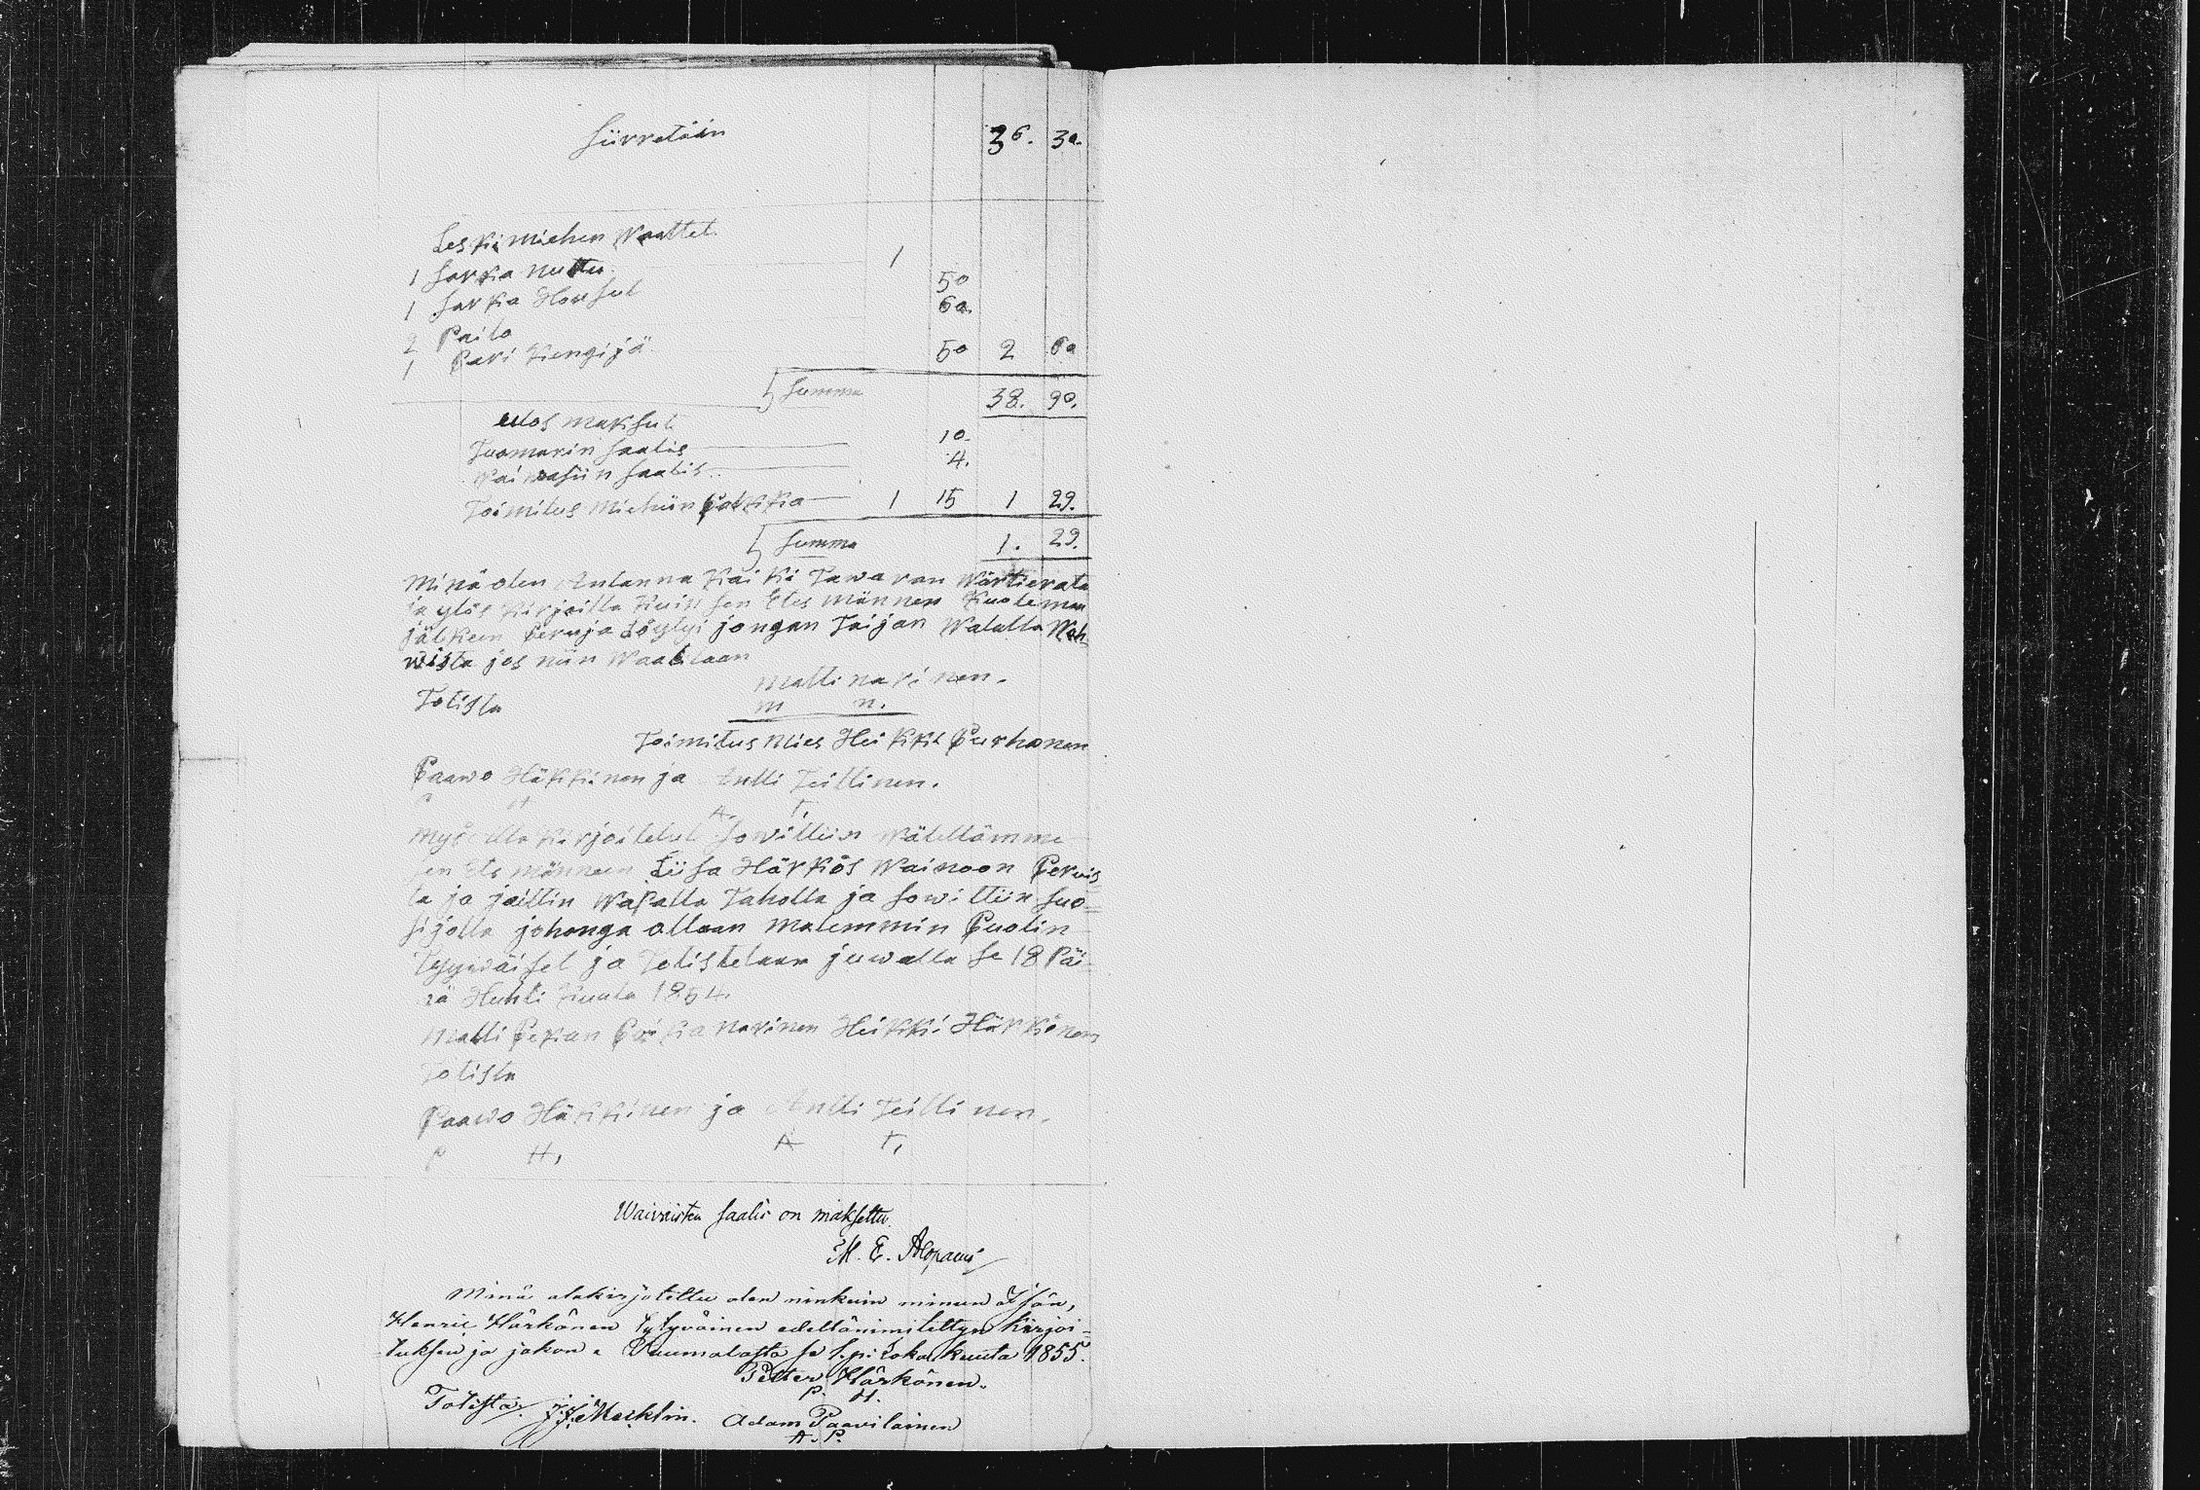 Siirretään 36. 30.
Leski miehen Waattet.
1 Sarka nuttu 1
1 Sarka Housut 50
2 Paito 60.
1 Pari Kengijä 50 2 60
Summa 38. 90.
ulos maksut
Tuomarin saatis 10.
Waiwasiin saatis 4.
Toimitus Miehiin palkka 1 15 1 29.
Summa 1. 29.
Minä olen Antanna Kaiki Tawaran Wärtierata
ja ylös kirjoitta Kuin sen Eles männen Kuoleman
jälkeen Peruja Löytyi jongan Taijan Walalla Wah-
wista jos niin Waatitaan
Matti Narinen.
m n.
Totista
Toimitus Mies Heikki Purhonen
Paawo Häkkinen ja Antti Teittinen.
P H A. T.
Myö alla kirjoitetut Sowittiin wälillämme
sen Eles männeen Liisa Härkös Wainoon Peruis-
ta ja jaittin Wapalla Taholla ja sowittiin suo-
sijolla johonga ollaan molemmin Puolin
Tyywäiset ja Totistetaan juwalla Se 18 Päi-
nä Huhti Kuuta 1854.
Matti Pekan Poika Narinen Heikki Härkönen
Totista
Paawo Häkkinen ja Antti Teittinen.
P H, A T,
Waivaisten saatis on maksettu.
M. E. Alopaeus
Minä alakirjotettu olen ninkuin minun Isän,
Henric Härkönen tytyväinen edellänimitettyn kirjoi-
tuksen ja jakon. Puumalasta se 1. p: Lokakuuta 1855.
Petter Härkönen.
P. H.
Totista: J. J. Mecklin. Adam Paavilainen
A. P.